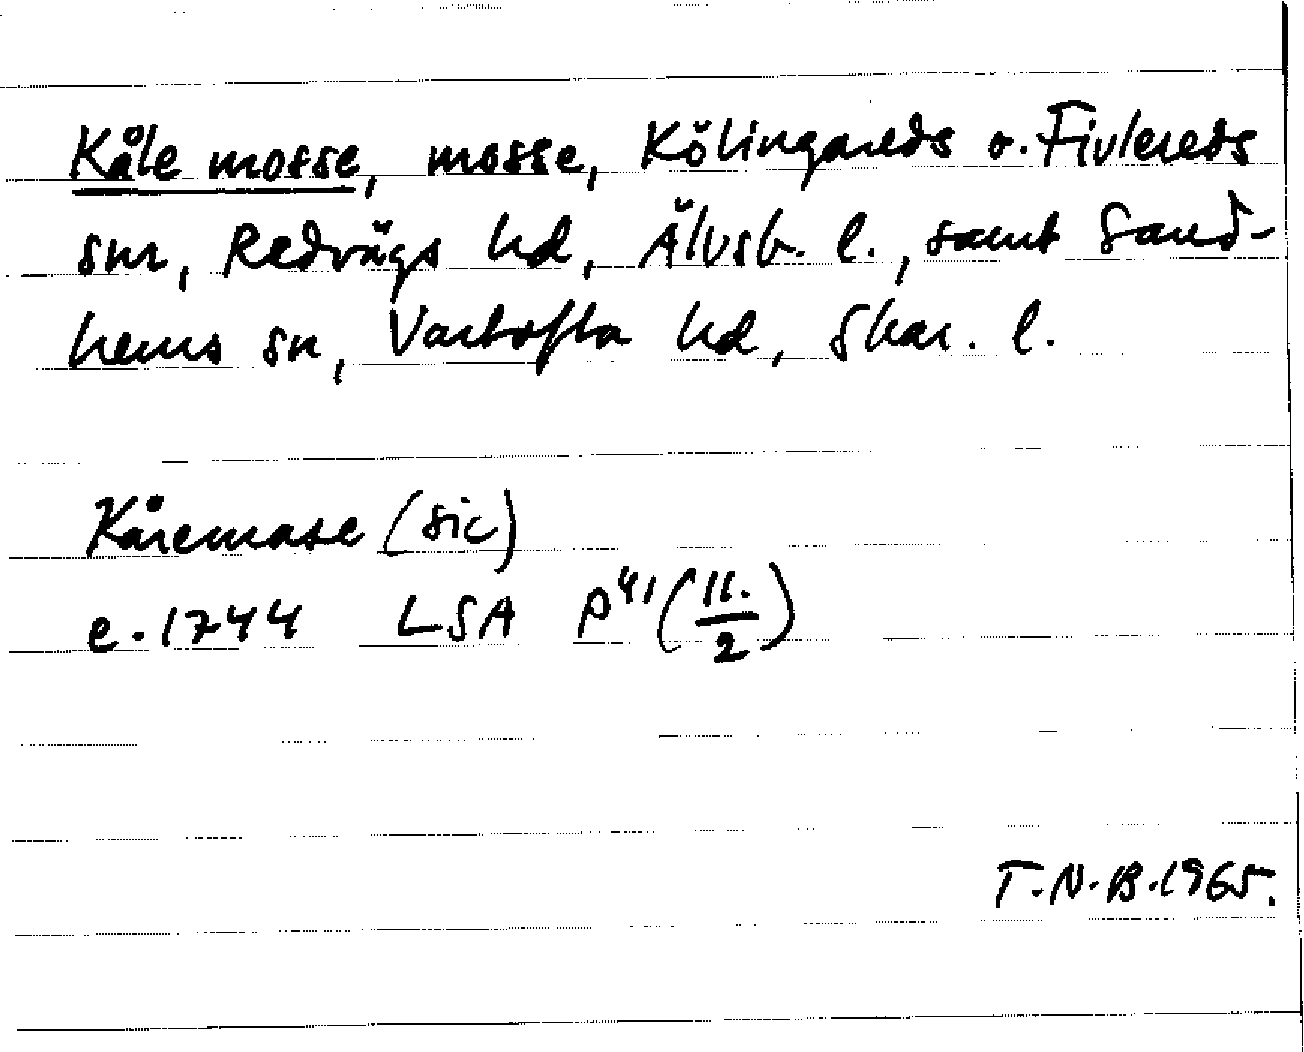 Kåle mosse, mosse, Kölingareds o. Fivlereds
snr, Redvägs hd, Älvsb. l., samt Sand-
hems sn, Vartofta hd, Skar. l.
Kåremase (sic)
e. 1744 LSA P41 (11./2)
T.N.B. 1965.